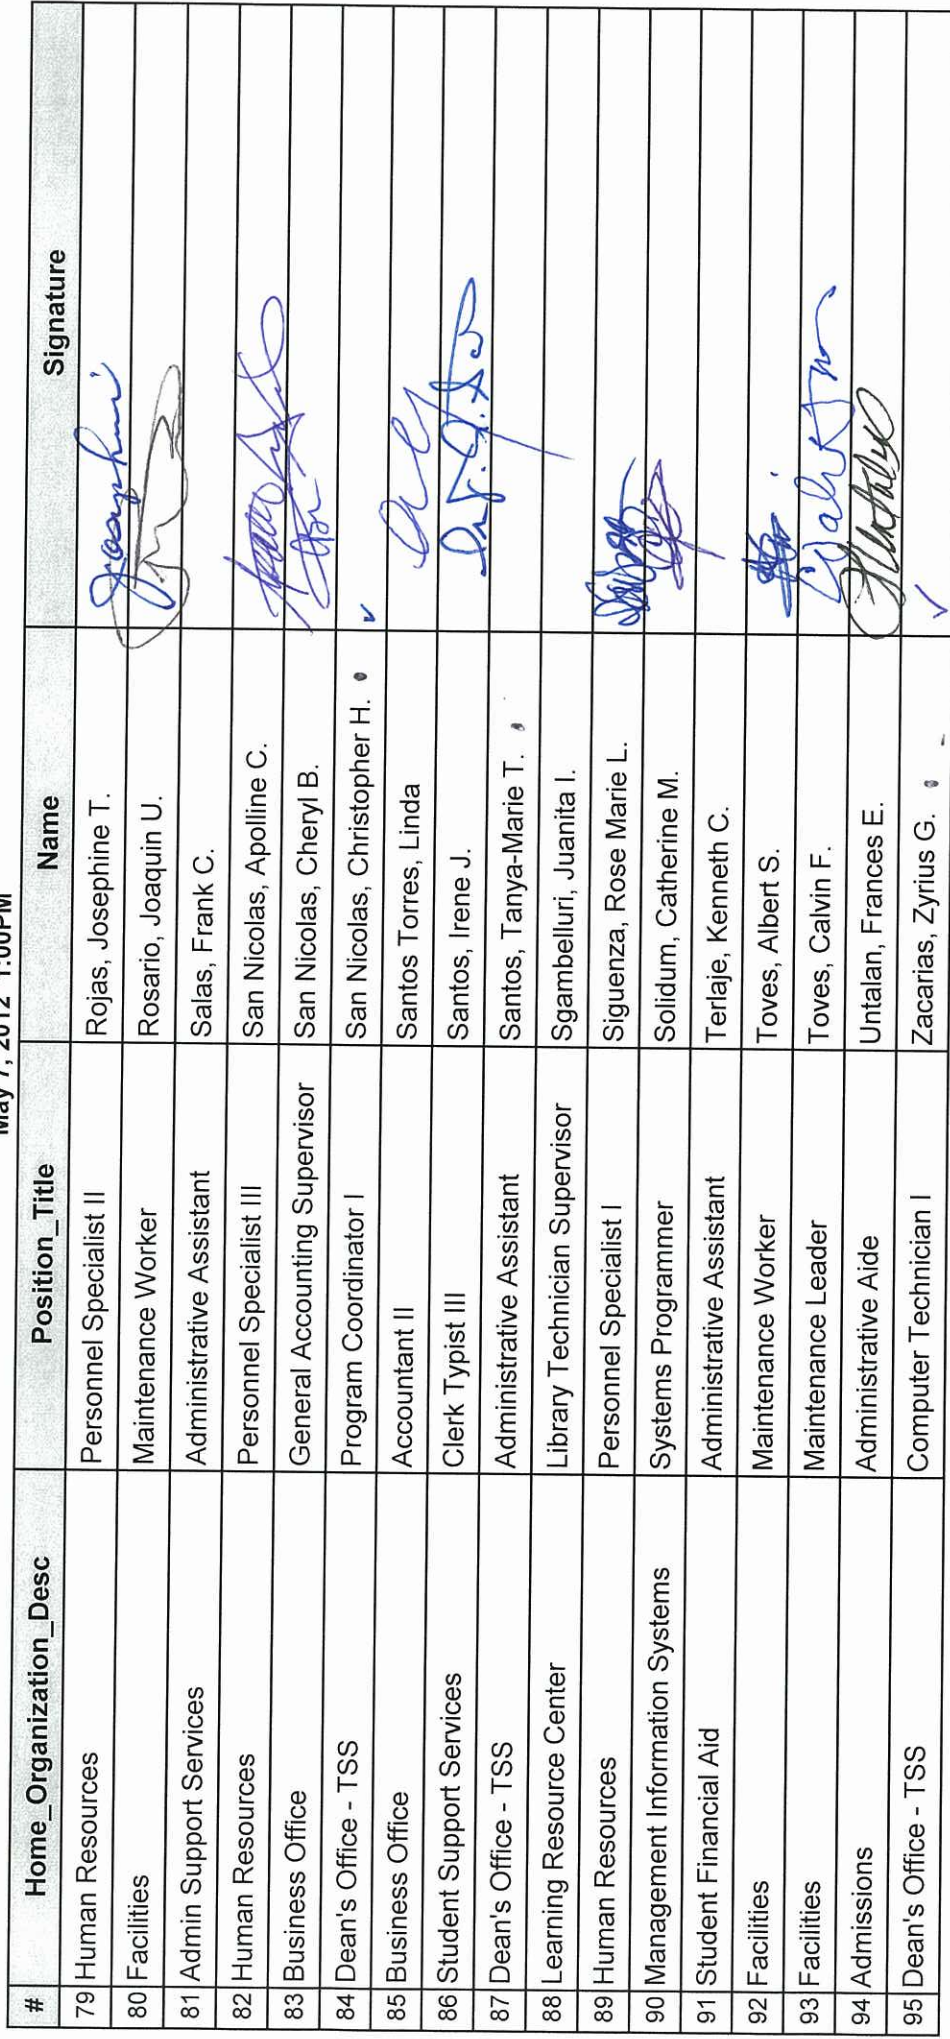 May 7, 2012 1:00PM
# Home_Organization_Desc Position_Title Name Signature
79 Human Resources Personnel Specialist II Rojas, Josephine T. Josephine
80 Facilities Maintenance Worker Rosario, Joaquin U.
81 Admin Support Services Administrative Assistant Salas, Frank C.
82 Human Resources Personnel Specialist III San Nicolas, Apolline C.
83 Business Office General Accounting Supervisor San Nicolas, Cheryl B.
84 Dean's Office - TSS Program Coordinator I San Nicolas, Christopher H. ✓
85 Business Office Accountant II Santos Torres, Linda
86 Student Support Services Clerk Typist III Santos, Irene J.
87 Dean's Office - TSS Administrative Assistant Santos, Tanya-Marie T.
88 Learning Resource Center Library Technician Supervisor Sgambelluri, Juanita I.
89 Human Resources Personnel Specialist I Siguenza, Rose Marie L.
90 Management Information Systems Systems Programmer Solidum, Catherine M.
91 Student Financial Aid Administrative Assistant Terlaje, Kenneth C.
92 Facilities Maintenance Worker Toves, Albert S.
93 Facilities Maintenance Leader Toves, Calvin F.
94 Admissions Administrative Aide Untalan, Frances E.
95 Dean's Office - TSS Computer Technician I Zacarias, Zyrius G. ✓